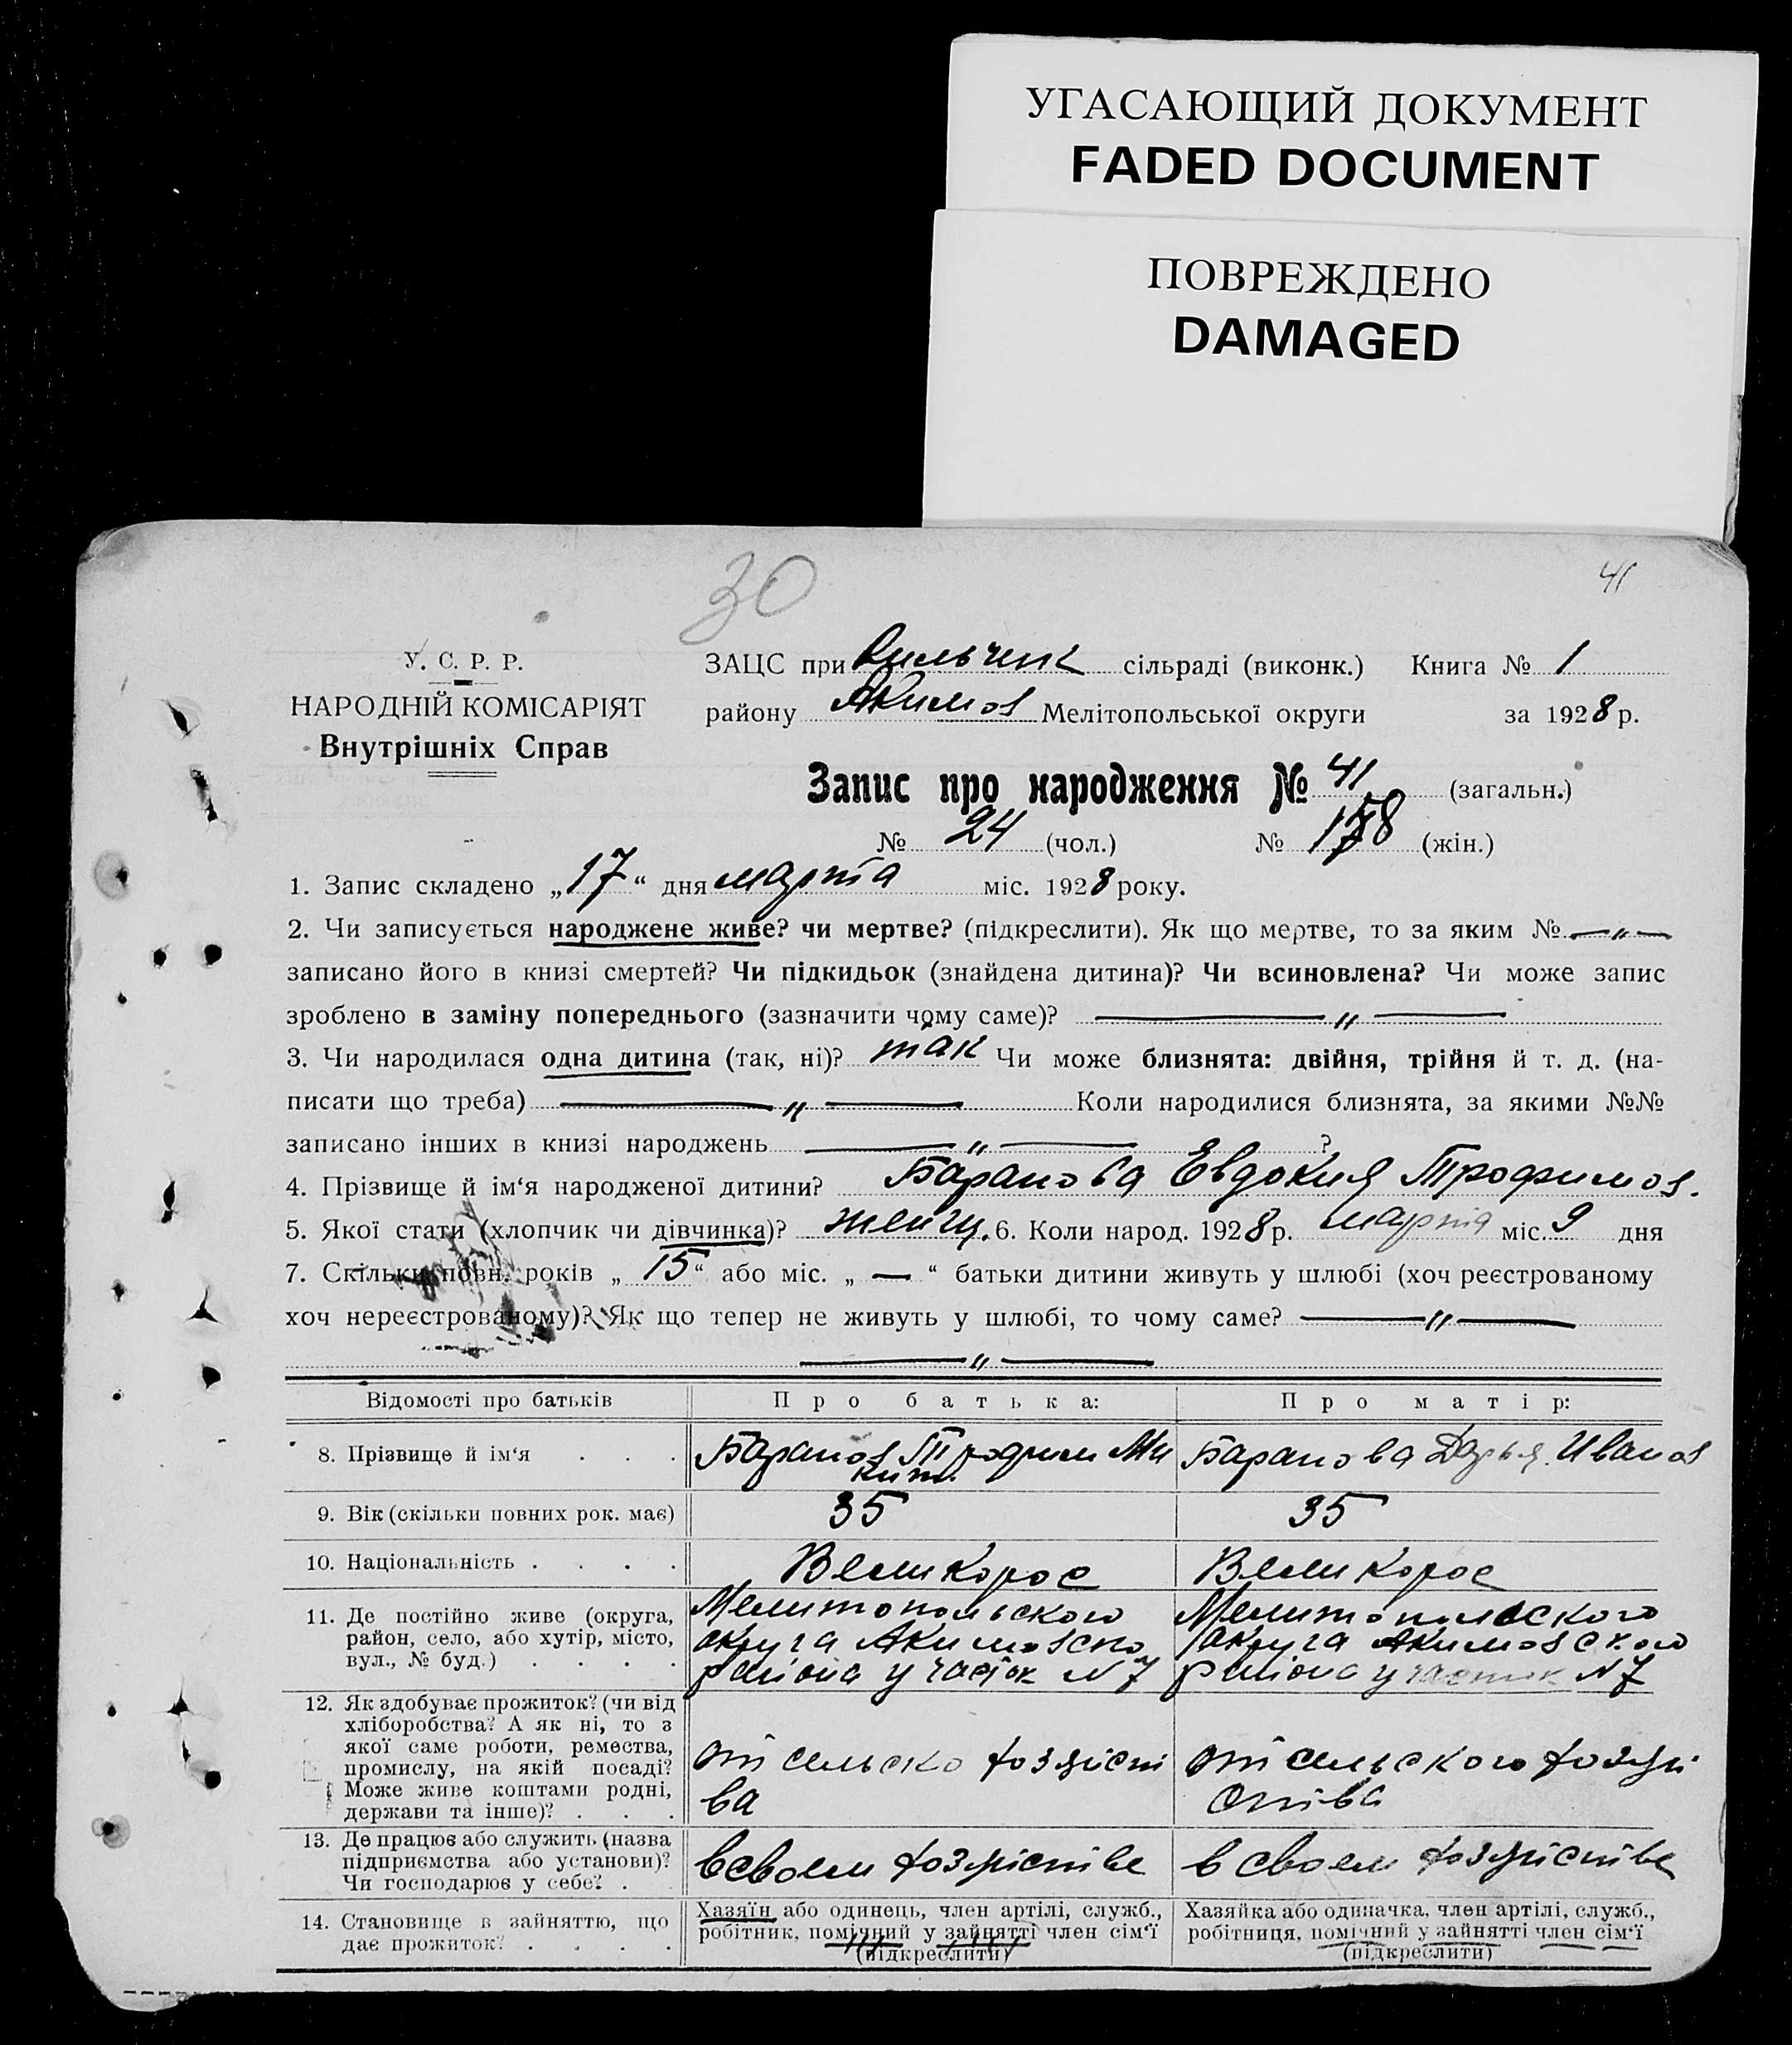 УГАСАЮЩИЙ ДОКУМЕНТ
FADED DOCUMENT
ПОВРЕЖДЕНО
DAMAGED
30
41
У. С. Р. Р.
НАРОДНІЙ КОМІСАРІЯТ
Внутрішніх Справ
ЗАЦС при сільраді (виконк.) Книга № 1
району Акимов Мелітопольської округи за 1928 р.
Запис про народження № 41 (загальн.)
№ 24 (чол.) № (жін.)
1. Запис складено „17“ дня марта міс. 1928 року.
2. Чи записується народжене живе? чи мертве? (підкреслити). Як що мертве, то за яким № —„—
записано його в книзі смертей? Чи підкидьок (знайдена дитина)? Чи всиновлена? Чи може запис
зроблено в заміну попереднього (зазначити чому саме)? —„—
3. Чи народилася одна дитина (так, ні)? так Чи може близнята: двійня, трійня й т. д. (на-
писати що треба) —„— Коли народилися близнята, за якими №№
записано інших в книзі народжень —„— ?
4. Прізвище й ім'я народженої дитини? Баранова Евдокия Трофимов.
5. Якої стати (хлопчик чи дівчинка)? женщ. 6. Коли народ. 1928 р. марта міс. 9 дня
7. Скільки повн. років „15“ або міс. „—“ батьки дитини живуть у шлюбі (хоч реєстрованому
хоч нереєстрованому)? Як що тепер не живуть у шлюбі, то чому саме? —„—
—„—
Відомості про батьків Про батька: Про матір:
8. Прізвище й ім'я . . . Баранов Трофим Ми Баранова Дарья Иванов
кит.
9. Вік (скільки повних рок. має) 35 35
10. Національність . . . . Великорос Великорос
11. Де постійно живе (округа, Мелитопольского Мелитопольского
район, село, або хутір, місто, округа Акимовско округа Акимовского
вул., № буд.) . . . . района участок N7 района участок N7
12. Як здобуває прожиток? (чи від
хліборобства? А як ні, то з
якої саме роботи, ремества,
промислу, на якій посаді? от сельско хозяіст от сельского хозяі
Може живе коштами родні, ва ства
держави та інше)? . . .
13. Де працює або служить (назва
підприємства або установи)? в своем хозяістве в своем хозяістве
Чи господарює у себе? .
14. Становище в зайняттю, що Хазяїн або одинець, член артілі, служб., Хазяйка або одиначка, член артілі, служб.,
дає прожиток? . . . . робітник, помічний у зайнятті член сім'ї робітниця, помічний у зайнятті член сім'ї
(підкреслити) (підкреслити)